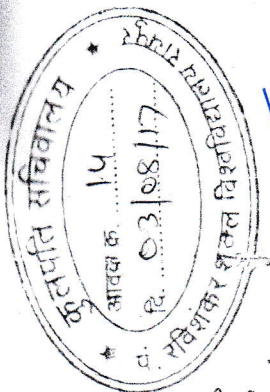 कुलपति सचिवालय
आवक क्र. 14
दि. 03/08/17
पं. रविशंकर शुक्ल विश्वविद्यालय रायपुर